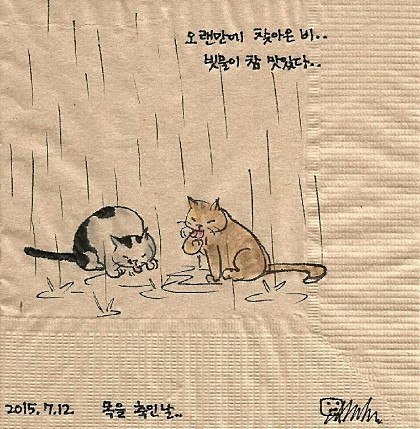 오랜만에 찾아온 비..
빗물이 참 맛있다..
2015.7.12 목을 축인날..